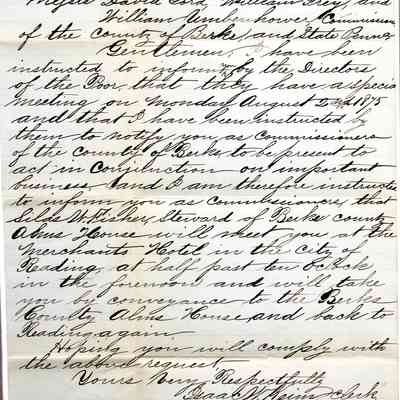 David Lord, William Grey, and
William Umbenhower, Commissioners
of the county of Berks, and State Penna
Gentlemen, I have been
instructed to inform you by the Directors
of the Poor, that they have a special
meeting on Monday August 2nd 1875
and that I have been instructed by
them to notify you as Commissioners
of the County of Berks to be present to
act in Conjunction on important
business, and I am therefore instructed
to inform you as Commissioners, that
Silas W. Fisher, Steward of Berks county
Alms House will meet you at the
Merchants Hotel in the City of
Reading, at half past ten O clock
in the forenoon and will take
you by conveyance to the Berks
County Alms House, and back to
Reading again
Hoping you will comply with
the above request,
Yours Very Respectfully
Isaac W. Keim Clerk